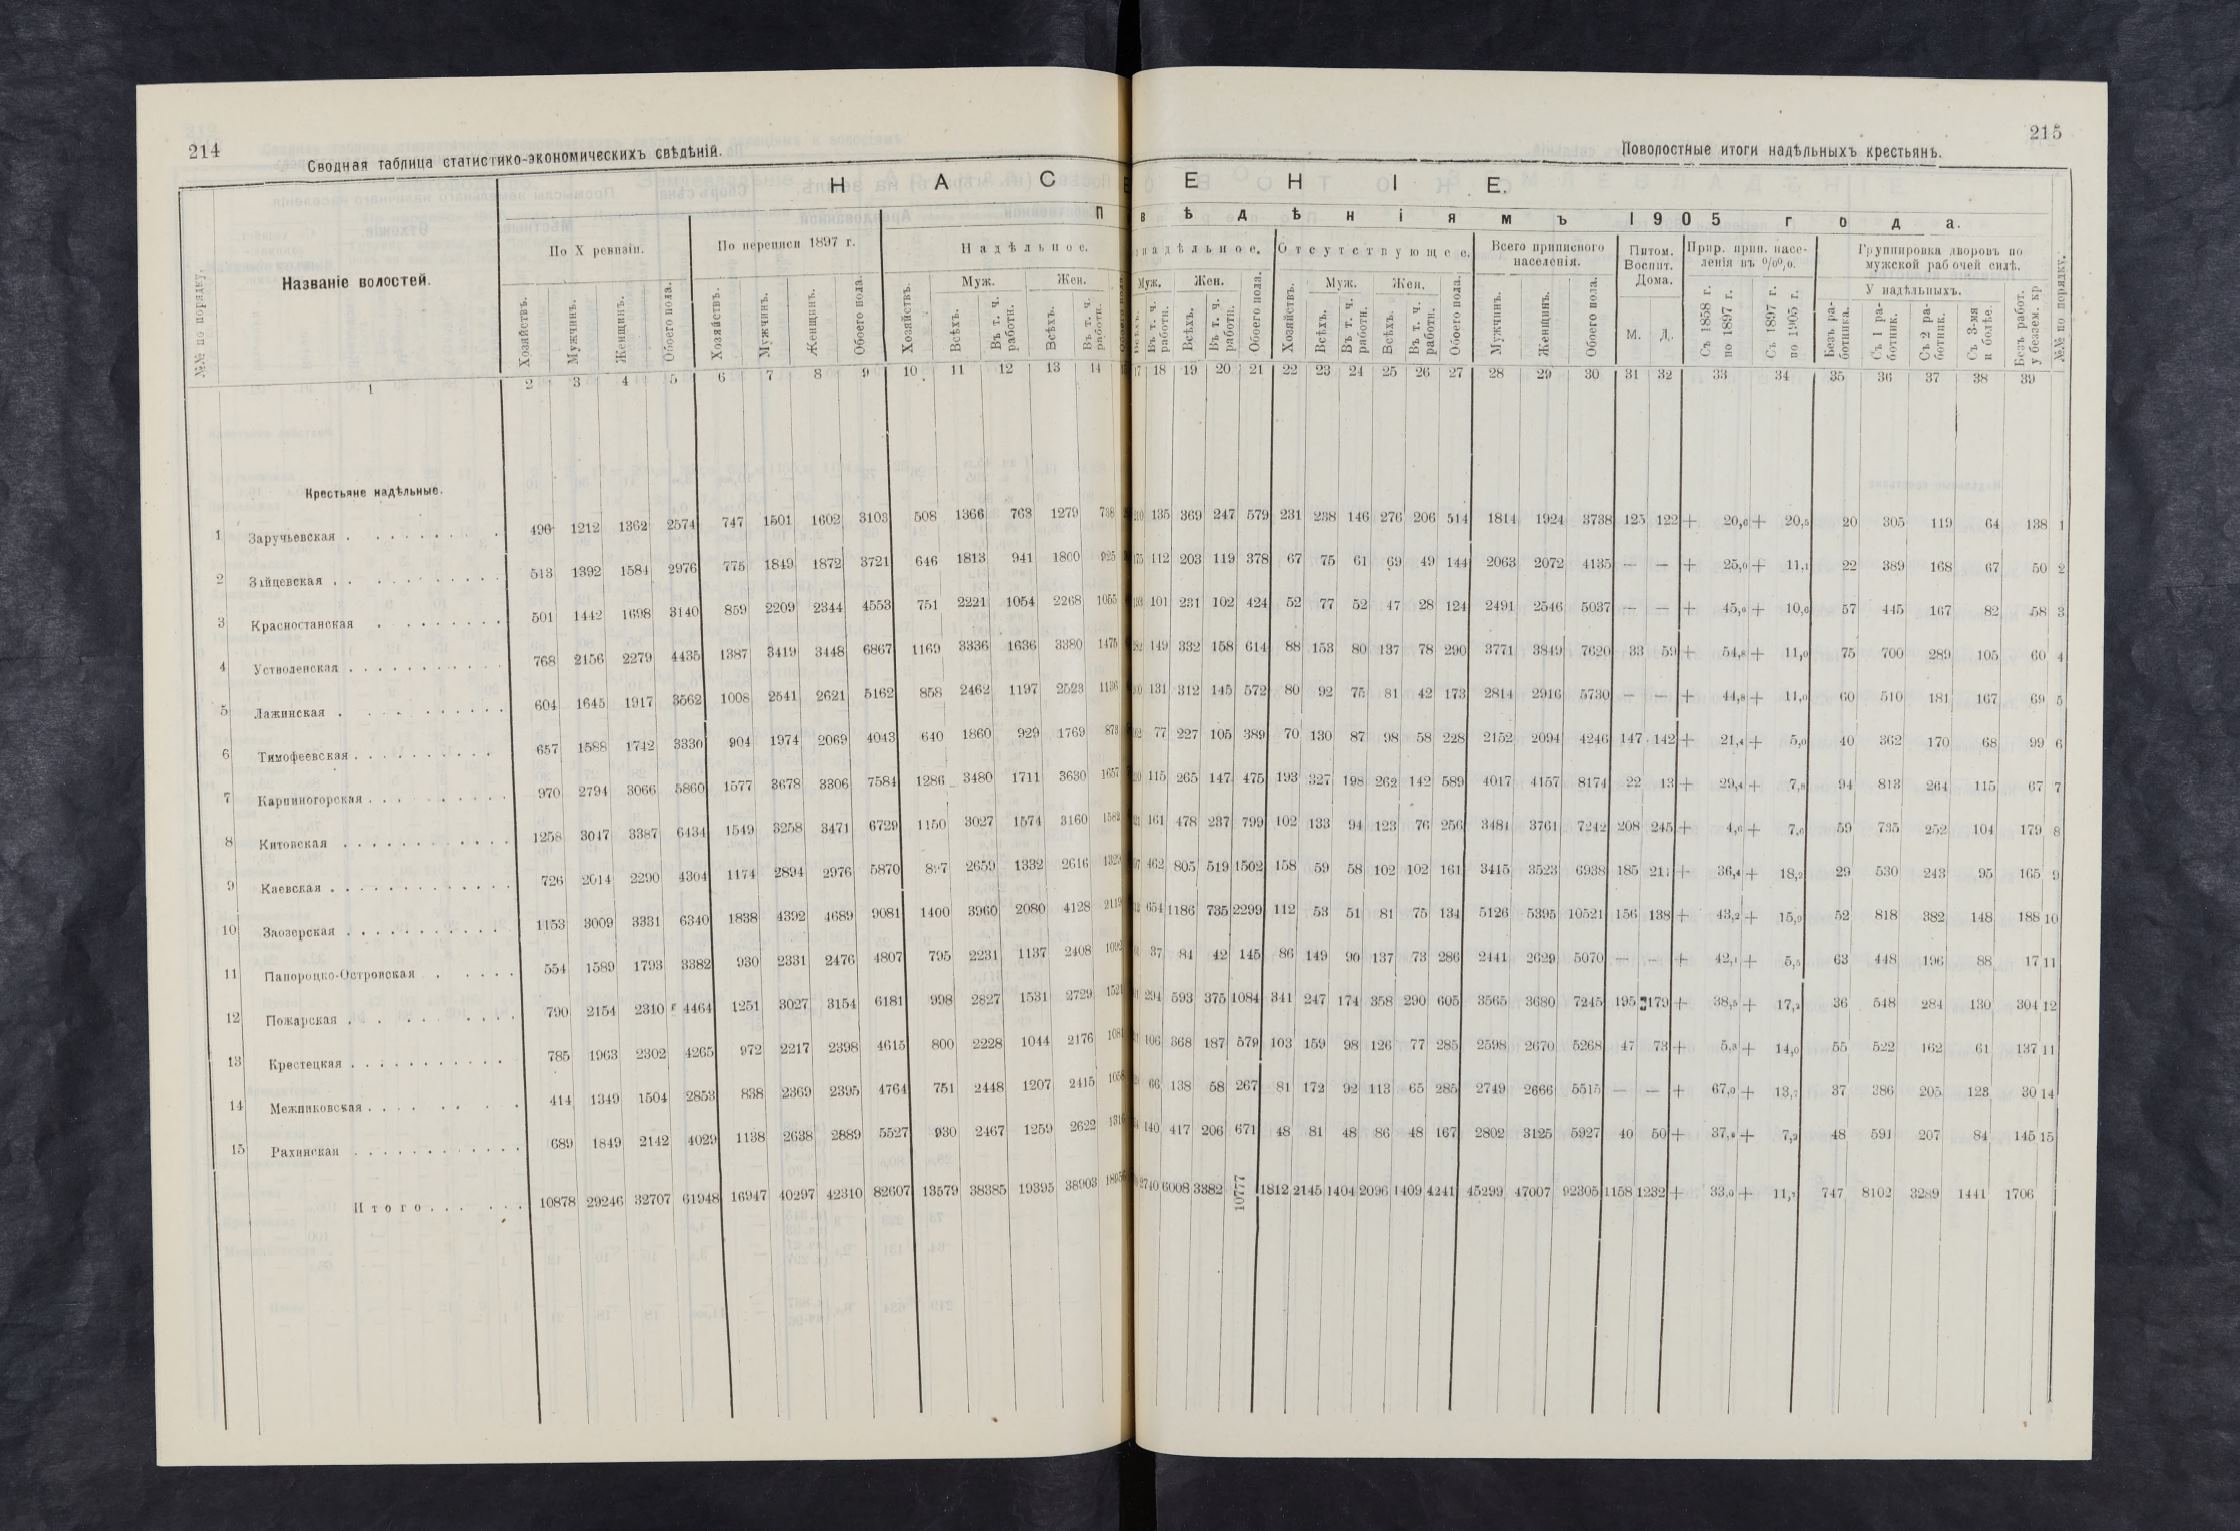 214
Сводная таблица статистико-экономическихъ свѣдѣній.
Н А С
П
№№ по порядку.
Названіе волостей.
По X ревизіи.
По переписи 1897 г.
Надѣльное.
Муж.
Жен.
Хозяйствъ.
Мужчинъ.
Женщинъ.
Обоего пола.
Хозяйствъ.
Мужчинъ.
Женщинъ.
Обоего пола.
Хозяйствъ.
Всѣхъ.
Въ т. ч. работн.
Всѣхъ.
Въ т. ч. работн.
1 2 3 4 5 6 7 8 9 10 11 12 13 14
Крестьяне надѣльные.
1 Заручьевская . 496 1212 1362 2574 747 1501 1602 3103 508 1366 763 1279 738
2 Зайцевская . 513 1392 1584 2976 775 1849 1872 3721 646 1813 941 1800 925
3 Красностанская . 501 1442 1698 3140 859 2209 2344 4553 751 2221 1054 2268 1055
4 Устволенская . 768 2156 2279 4435 1387 3419 3448 6867 1169 3336 1636 3380 1475
5 Лажинская . 604 1645 1917 3562 1008 2541 2621 5162 858 2462 1197 2523 1136
6 Тимофеевская . 657 1588 1742 3330 904 1974 2069 4043 640 1860 929 1769
7 Карпиногорская . 970 2794 3066 5860 1577 3678 3306 7584 1286 3480 1711 3630 1657
8 Китовская . 1258 3047 3387 6434 1549 3258 3471 6729 1150 3027 1574 3160 1582
9 Каевская . 726 2014 2290 4304 1174 2894 2976 5870 897 2659 1332 2616
10 Заозерская . 1153 3009 3331 6340 1838 4392 4689 9081 1400 3960 2080 4128
11 Папороцко-Островская . 554 1589 1793 3382 930 2331 2476 4807 795 2231 1137 2408
12 Пожарская . 790 2154 2310 4464 1251 3027 3154 6181 998 2827 1531 2729
13 Крестецкая . 785 1963 2302 4265 972 2217 2398 4615 800 2228 1044 2176
14 Межниковская . 414 1349 1504 2853 838 2369 2395 4764 751 2448 1207 2415
15 Рахинская . 689 1849 2142 4029 1138 2638 2889 5527 930 2467 1259 2622
Итого . 10878 29246 32707 61948 16947 40297 42310 82607 13579 38385 19395 38903
215
Поволостные итоги надѣльныхъ крестьянъ.
Е Н І Е.
вѣдѣніямъ 1905 года.
надѣльное.
Отсутствующее.
Всего приписного населенія.
Питом. Воспит. Дома.
Прир. прип. населенія въ %%.
Группировка дворовъ по мужской рабочей силѣ.
Муж.
Жен.
Муж.
Жен.
У надѣльныхъ.
Въ т. ч. работн.
Всѣхъ.
Въ т. ч. работн.
Обоего пола.
Хозяйствъ.
Всѣхъ.
Въ т. ч. работн.
Всѣхъ.
Въ т. ч. работн.
Обоего пола.
Мужчинъ.
Женщинъ.
Обоего пола.
М.
Д.
Съ 1858 г. по 1897 г.
Съ 1897 г. по 1905 г.
Безъ работника.
Съ 1 работник.
Съ 2 работник.
Съ 3-мя и болѣе.
Безъ работ. у беззем. кр
№№ по порядку.
17 18 19 20 21 22 23 24 25 26 27 28 29 30 31 32 33 34 35 36 37 38 39
135 369 247 579 231 238 146 276 206 514 1814 1924 3738 125 122 + 20,6 + 20,5 20 305 119 64 138 1
112 203 119 378 67 75 61 69 49 144 2063 2072 4135 — — + 25,0 + 11,1 22 389 168 67 50 2
101 231 102 424 52 77 52 47 28 124 2491 2546 5037 — — + 45,0 + 10,6 57 445 167 82 58 3
149 332 158 614 88 153 80 137 78 290 3771 3849 7620 33 59 + 54,8 + 11,0 75 700 289 105 60 4
131 312 145 572 80 92 75 81 42 173 2814 2916 5730 — — + 44,8 + 11,0 60 510 181 167 69 5
77 227 105 389 70 130 87 98 58 228 2152 2094 4246 147 142 + 21,4 + 5,0 40 362 170 68 99 6
115 265 147 475 193 327 198 262 142 589 4017 4157 8174 22 13 + 29,4 + 7,8 94 813 264 115 67 7
161 478 237 799 102 133 94 123 76 256 3481 3761 7242 208 245 + 4,6 + 7,6 59 735 252 104 179 8
462 805 519 1502 158 59 58 102 102 161 3415 3523 6938 185 211 + 36,4 + 18,2 29 530 243 95 165 9
654 1186 735 2299 112 53 51 81 75 134 5126 5395 10521 156 138 + 43,2 + 15,9 52 818 382 148 188 10
37 84 42 145 86 149 90 137 73 286 2441 2629 5070 — — + 42,1 + 5,5 63 448 196 88 17 11
294 593 375 1084 341 247 174 358 290 605 3565 3680 7245 195 179 + 38,5 + 17,2 36 548 284 130 304 12
106 368 187 579 103 159 98 126 77 285 2598 2670 5268 47 73 + 5,8 + 14,0 55 522 162 61 137 11
66 138 58 267 81 172 92 113 65 285 2749 2666 5515 — — + 67,0 + 13,7 37 386 205 123 30 14
140 417 206 671 48 81 48 86 48 167 2802 3125 5927 40 50 + 37,6 + 7,2 48 591 207 84 145 15
2740 6008 3382 10777 1812 2145 1404 2096 1409 4241 45299 47007 92305 1158 1232 + 33,0 + 11,7 747 8102 3289 1441 1706